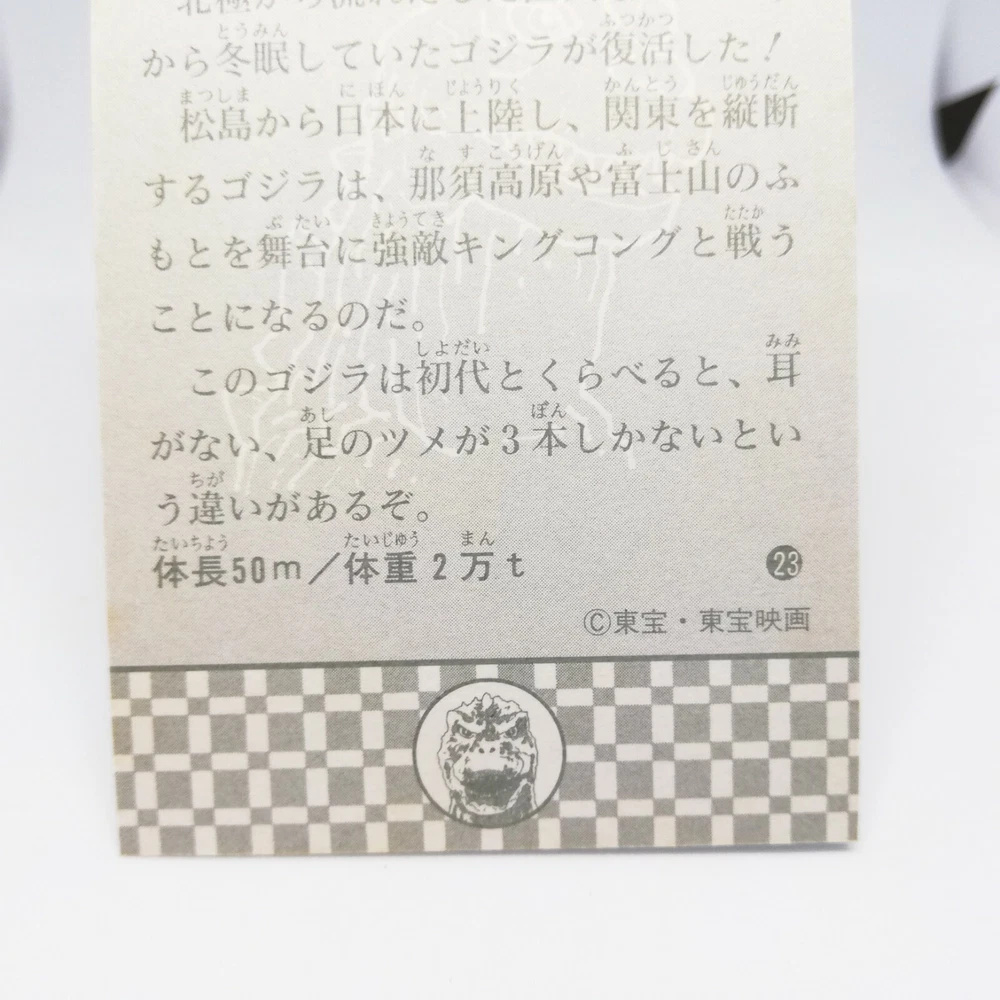 から冬眠していたゴジラが復活した！
松島から日本に上陸し、関東を縦断
するゴジラは、那須高原や富士山のふ
もとを舞台に強敵キングコングと戦う
ことになるのだ。
このゴジラは初代とくらべると、耳
がない、足のツメが3本しかないとい
う違いがあるぞ。
体長50m／体重2万t
23
©東宝・東宝映画